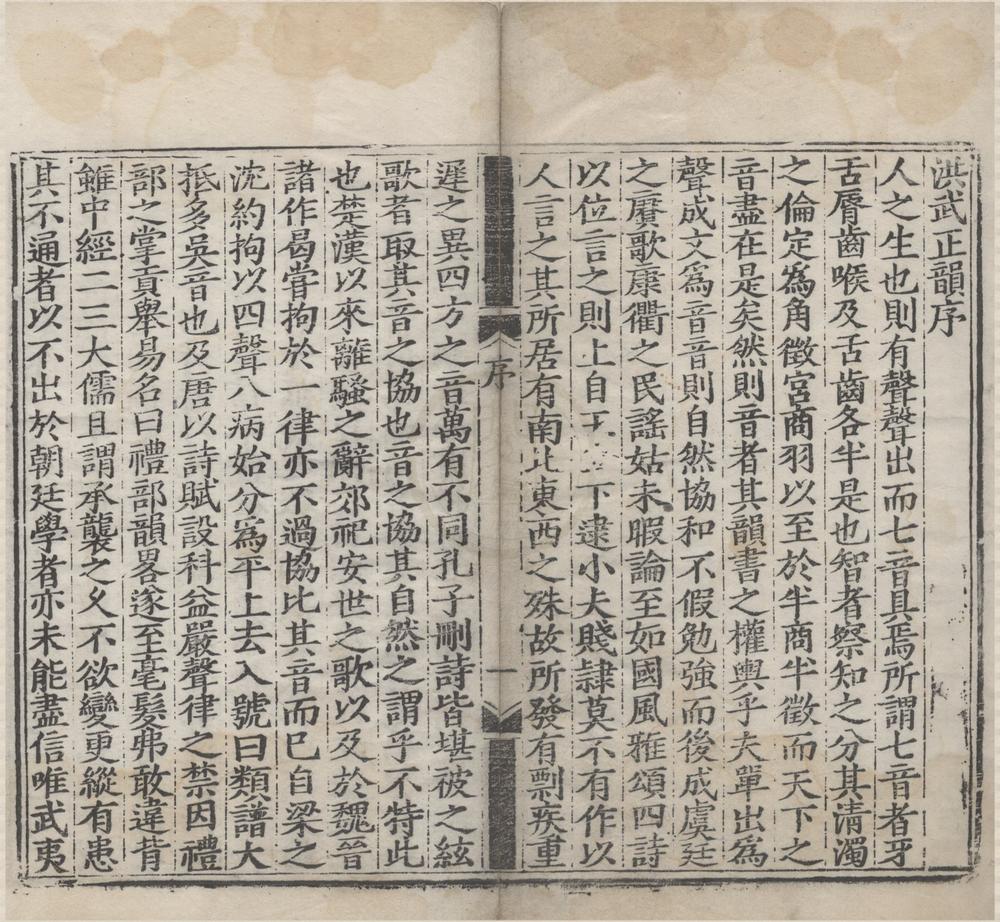 洪武正韻序
人之生也則有聲聲出而七音具焉所謂七音者牙
舌脣齒喉及舌齒各半是也智者察知之分其清濁
之倫定爲角徵宮商羽以至於半商半徵而天下之
音盡在是矣然則音者其韻書之權輿乎夫單出爲
聲成文爲音音則自然協和不假勉強而後成虞廷
之賡歌康衢之民謠姑未暇論至如國風雅頌四詩
以位言之則上自王下逮小夫賤隷莫不有作以
人言之其所居有南北東西之殊故所發有剽疾重
序
一
遲之異四方之音萬有不同孔子刪詩皆堪被之絃
歌者取其音之協也音之協其自然之謂乎不特此
也楚漢以來離騷之辭郊祀安世之歌以及於魏晉
諸作曷嘗拘於一律亦不過協比其音而已自梁之
沈約拘以四聲八病始分爲平上去入號曰類譜大
抵多吳音也及唐以詩賦設科益嚴聲律之禁因禮
部之掌貢舉易名曰禮部韻畧遂至毫髮弗敢違背
雖中經二三大儒且謂承襲之乆不欲變更縱有患
其不通者以不出於朝廷學者亦未能盡信唯武夷